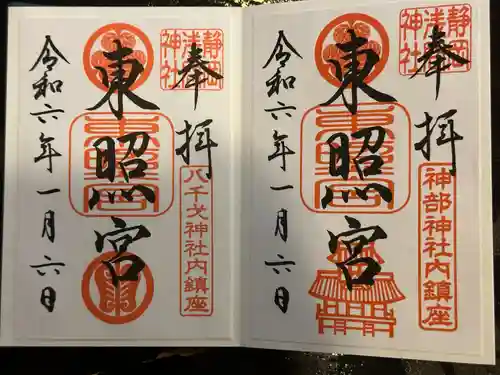 奉拝
静岡
浅間
神社
神部神社内鎮座
東照宮
令和六年一月六日
奉拝
静岡
浅間
神社
八千戈神社内鎮座
東照宮
令和六年一月六日